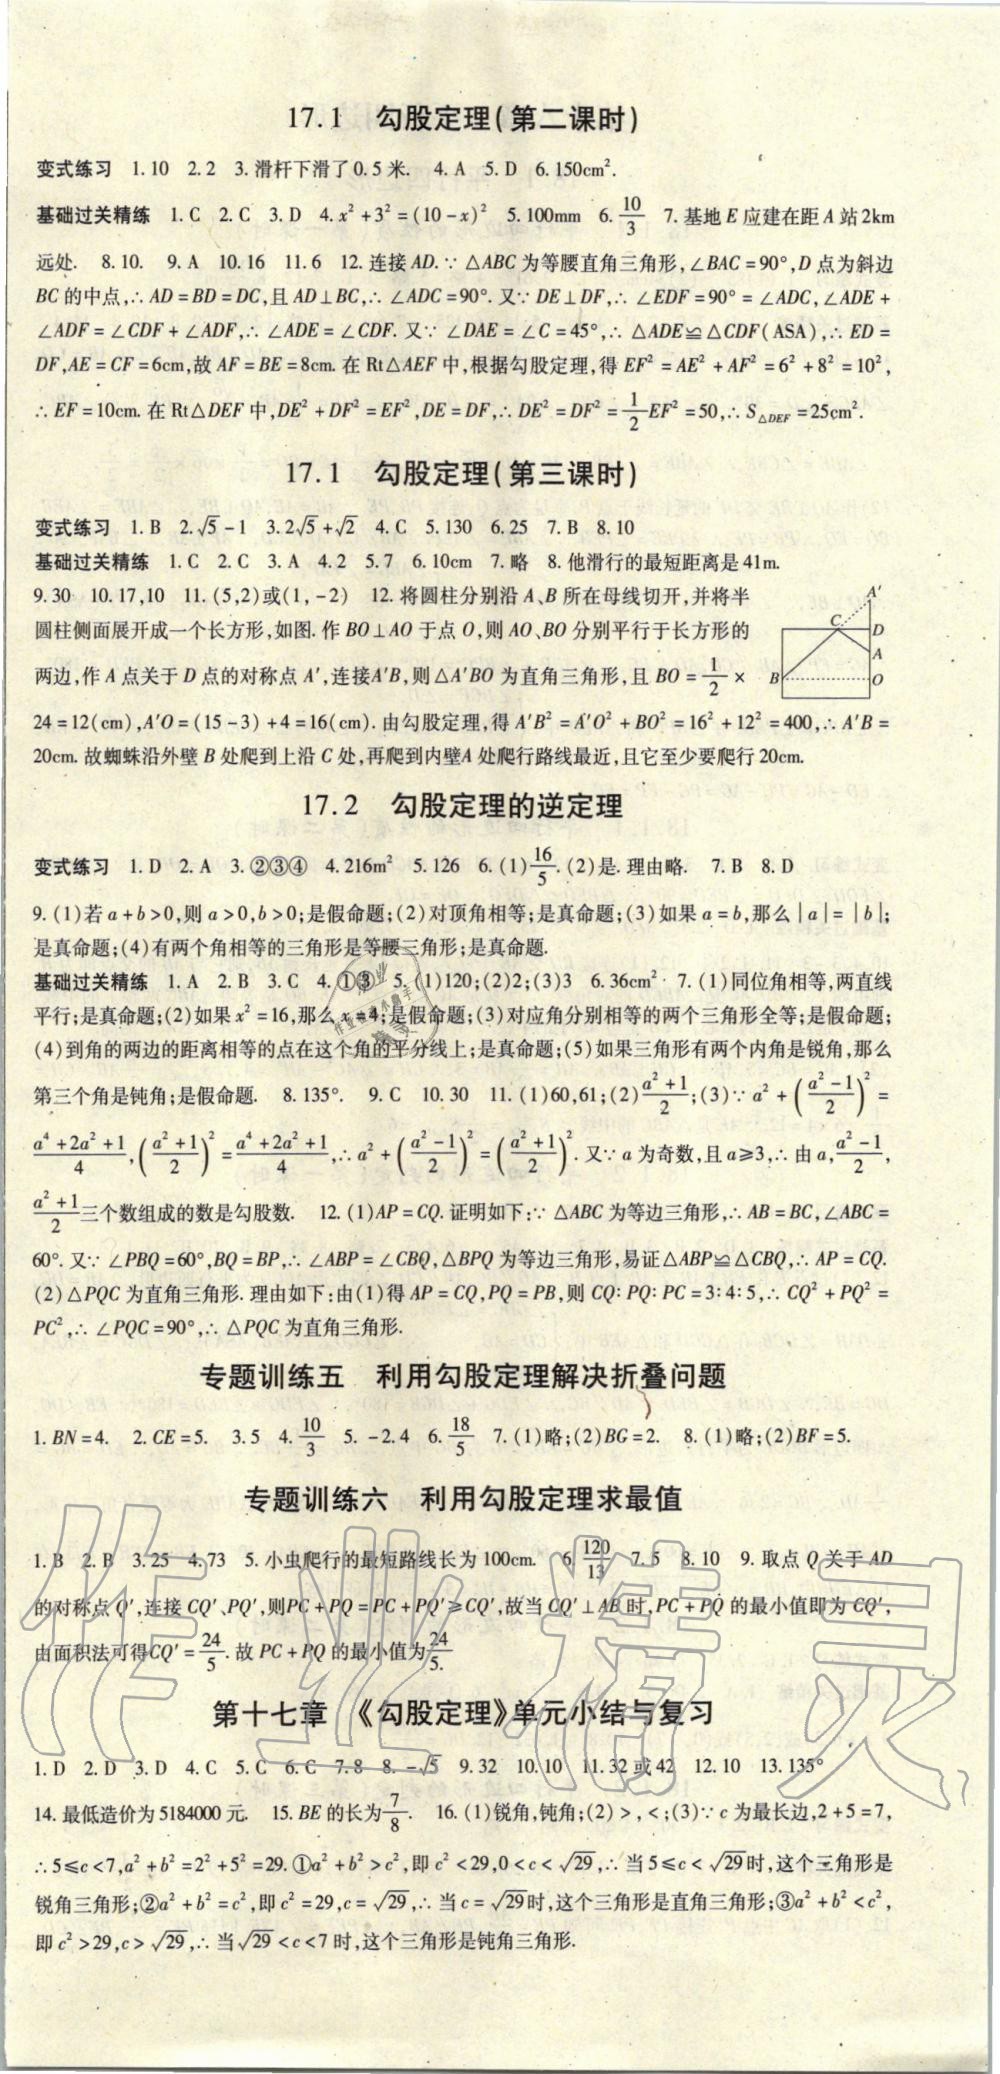 17.1 勾股定理(第二课时)
变式练习 1.10 2.2 3.滑杆下滑了0.5米. 4.A 5.D 6.150cm².
基础过关精练 1.C 2.C 3.D 4.x²+3²=(10-x)² 5.100mm 6.10/3 7.基地E应建在距A站2km
远处. 8.10. 9.A 10.16 11.6 12.连接AD.∵△ABC为等腰直角三角形,∠BAC=90°,D点为斜边
BC的中点,∴AD=BD=DC,且AD⊥BC,∴∠ADC=90°.又∵DE⊥DF,∴∠EDF=90°=∠ADC,∠ADE+
∠ADF=∠CDF+∠ADF,∴∠ADE=∠CDF.又∵∠DAE=∠C=45°,∴△ADE≌△CDF(ASA),∴ED=
DF,AE=CF=6cm,故AF=BE=8cm.在Rt△AEF中,根据勾股定理,得EF²=AE²+AF²=6²+8²=10²,
∴EF=10cm.在Rt△DEF中,DE²+DF²=EF²,DE=DF,∴DE²=DF²=1/2EF²=50,∴S△DEF=25cm².
17.1 勾股定理(第三课时)
变式练习 1.B 2.√5-1 3.2√5+√2 4.C 5.130 6.25 7.B 8.10
基础过关精练 1.C 2.C 3.A 4.2 5.7 6.10cm 7.略 8.他滑行的最短距离是41m.
9.30 10.17,10 11.(5,2)或(1,-2) 12.将圆柱分别沿A、B所在母线切开,并将半
圆柱侧面展开成一个长方形,如图.作BO⊥AO于点O,则AO、BO分别平行于长方形的
两边,作A点关于D点的对称点A′,连接A′B,则△A′BO为直角三角形,且BO=1/2×
A′
C
D
A
B
O
24=12(cm),A′O=(15-3)+4=16(cm).由勾股定理,得A′B²=A′O²+BO²=16²+12²=400,∴A′B=
20cm.故蜘蛛沿外壁B处爬到上沿C处,再爬到内壁A处爬行路线最近,且它至少要爬行20cm.
17.2 勾股定理的逆定理
变式练习 1.D 2.A 3.②③④ 4.216m² 5.126 6.(1)16/5.(2)是.理由略. 7.B 8.D
9.(1)若a+b>0,则a>0,b>0;是假命题;(2)对顶角相等;是真命题;(3)如果a=b,那么|a|=|b|;
是真命题;(4)有两个角相等的三角形是等腰三角形;是真命题.
基础过关精练 1.A 2.B 3.C 4.①③ 5.(1)120;(2)2;(3)3 6.36cm² 7.(1)同位角相等,两直线
平行;是真命题;(2)如果x²=16,那么x=4;是假命题;(3)对应角分别相等的两个三角形全等;是假命题;
(4)到角的两边的距离相等的点在这个角的平分线上;是真命题;(5)如果三角形有两个内角是锐角,那么
第三个角是钝角;是假命题. 8.135°. 9.C 10.30 11.(1)60,61;(2)(a²+1)/2;(3)∵a²+((a²-1)/2)²=
(a⁴+2a²+1)/4,((a²+1)/2)²=(a⁴+2a²+1)/4,∴a²+((a²-1)/2)²=((a²+1)/2)².又∵a为奇数,且a≥3,∴由a,(a²-1)/2,
(a²+1)/2三个数组成的数是勾股数. 12.(1)AP=CQ.证明如下:∵△ABC为等边三角形,∴AB=BC,∠ABC=
60°.又∵∠PBQ=60°,BQ=BP,∴∠ABP=∠CBQ,△BPQ为等边三角形,易证△ABP≌△CBQ,∴AP=CQ.
(2)△PQC为直角三角形.理由如下:由(1)得AP=CQ,PQ=PB,则CQ:PQ:PC=3:4:5,∴CQ²+PQ²=
PC²,∴∠PQC=90°,∴△PQC为直角三角形.
专题训练五 利用勾股定理解决折叠问题
1.BN=4. 2.CE=5. 3.5 4.10/3 5.-2.4 6.18/5 7.(1)略;(2)BG=2. 8.(1)略;(2)BF=5.
专题训练六 利用勾股定理求最值
1.B 2.B 3.25 4.73 5.小虫爬行的最短路线长为100cm. 6.120/13 7.5 8.10 9.取点Q关于AD
的对称点Q′,连接CQ′、PQ′,则PC+PQ=PC+PQ′≥CQ′,故当CQ′⊥AB时,PC+PQ的最小值即为CQ′,
由面积法可得CQ′=24/5.故PC+PQ的最小值为24/5.
第十七章 《勾股定理》单元小结与复习
1.D 2.D 3.D 4.C 5.C 6.C 7.8 8.-√5 9.32 10.10 11.32或42 12.10 13.135°
14.最低造价为5184000元. 15.BE的长为7/8. 16.(1)锐角,钝角;(2)>,<;(3)∵c为最长边,2+5=7,
∴5≤c<7,a²+b²=2²+5²=29.①a²+b²>c²,即c²<29,0<c<√29,∴当5≤c<√29时,这个三角形是
锐角三角形;②a²+b²=c²,即c²=29,c=√29,∴当c=√29时,这个三角形是直角三角形;③a²+b²<c²,
即c²>29,c>√29,∴当√29<c<7时,这个三角形是钝角三角形.
作业精灵